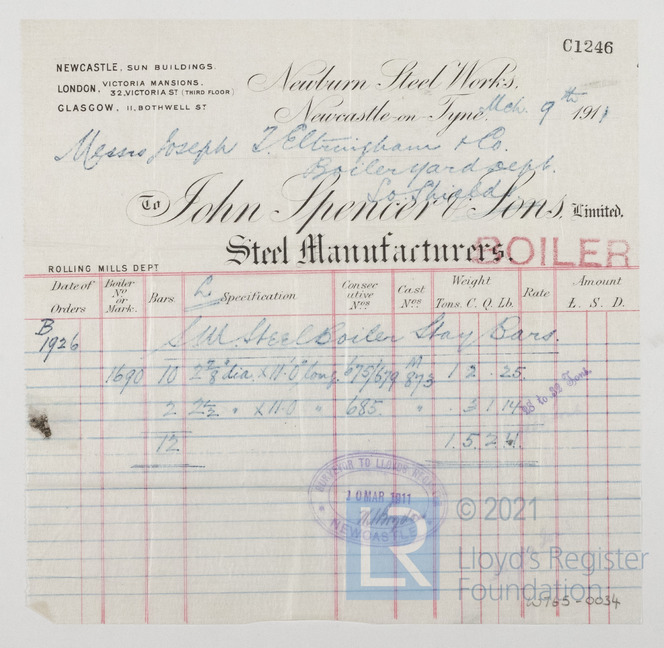 C1246
NEWCASTLE, SUN BUILDINGS.
LONDON, VICTORIA MANSIONS, 32, VICTORIA ST (THIRD FLOOR)
GLASGOW, 11, BOTHWELL ST
Newburn Steel Works,
Newcastle-on-Tyne, Mch. 9th 1911
Messrs Joseph T. Eltringham & Co.
Boiler yard Dept.
So. Shields
To John Spencer & Sons, Limited.
Steel Manufacturers.
BOILER
ROLLING MILLS DEPT
Date of Orders Boiler No or Mark. Bars. Specification Consecutive Nos Cast Nos Weight Tons. C. Q. Lb. Rate Amount £. S. D.
B 1926 S.M. Steel Boiler Stay Bars.
1690 10 2 7/8" dia. x 11'-0" long. 675/679 M 873 1 2 . 25
2 2 1/2 " x 11-0 " 685. " . 3 1 14
28 to 32 Tons.
12 1. 5. 2
SURVEYOR TO LLOYDS REGISTER
10 MAR 1911
NEWCASTLE
LR
© 2021
Lloyd's Register
Foundation
W765-0034